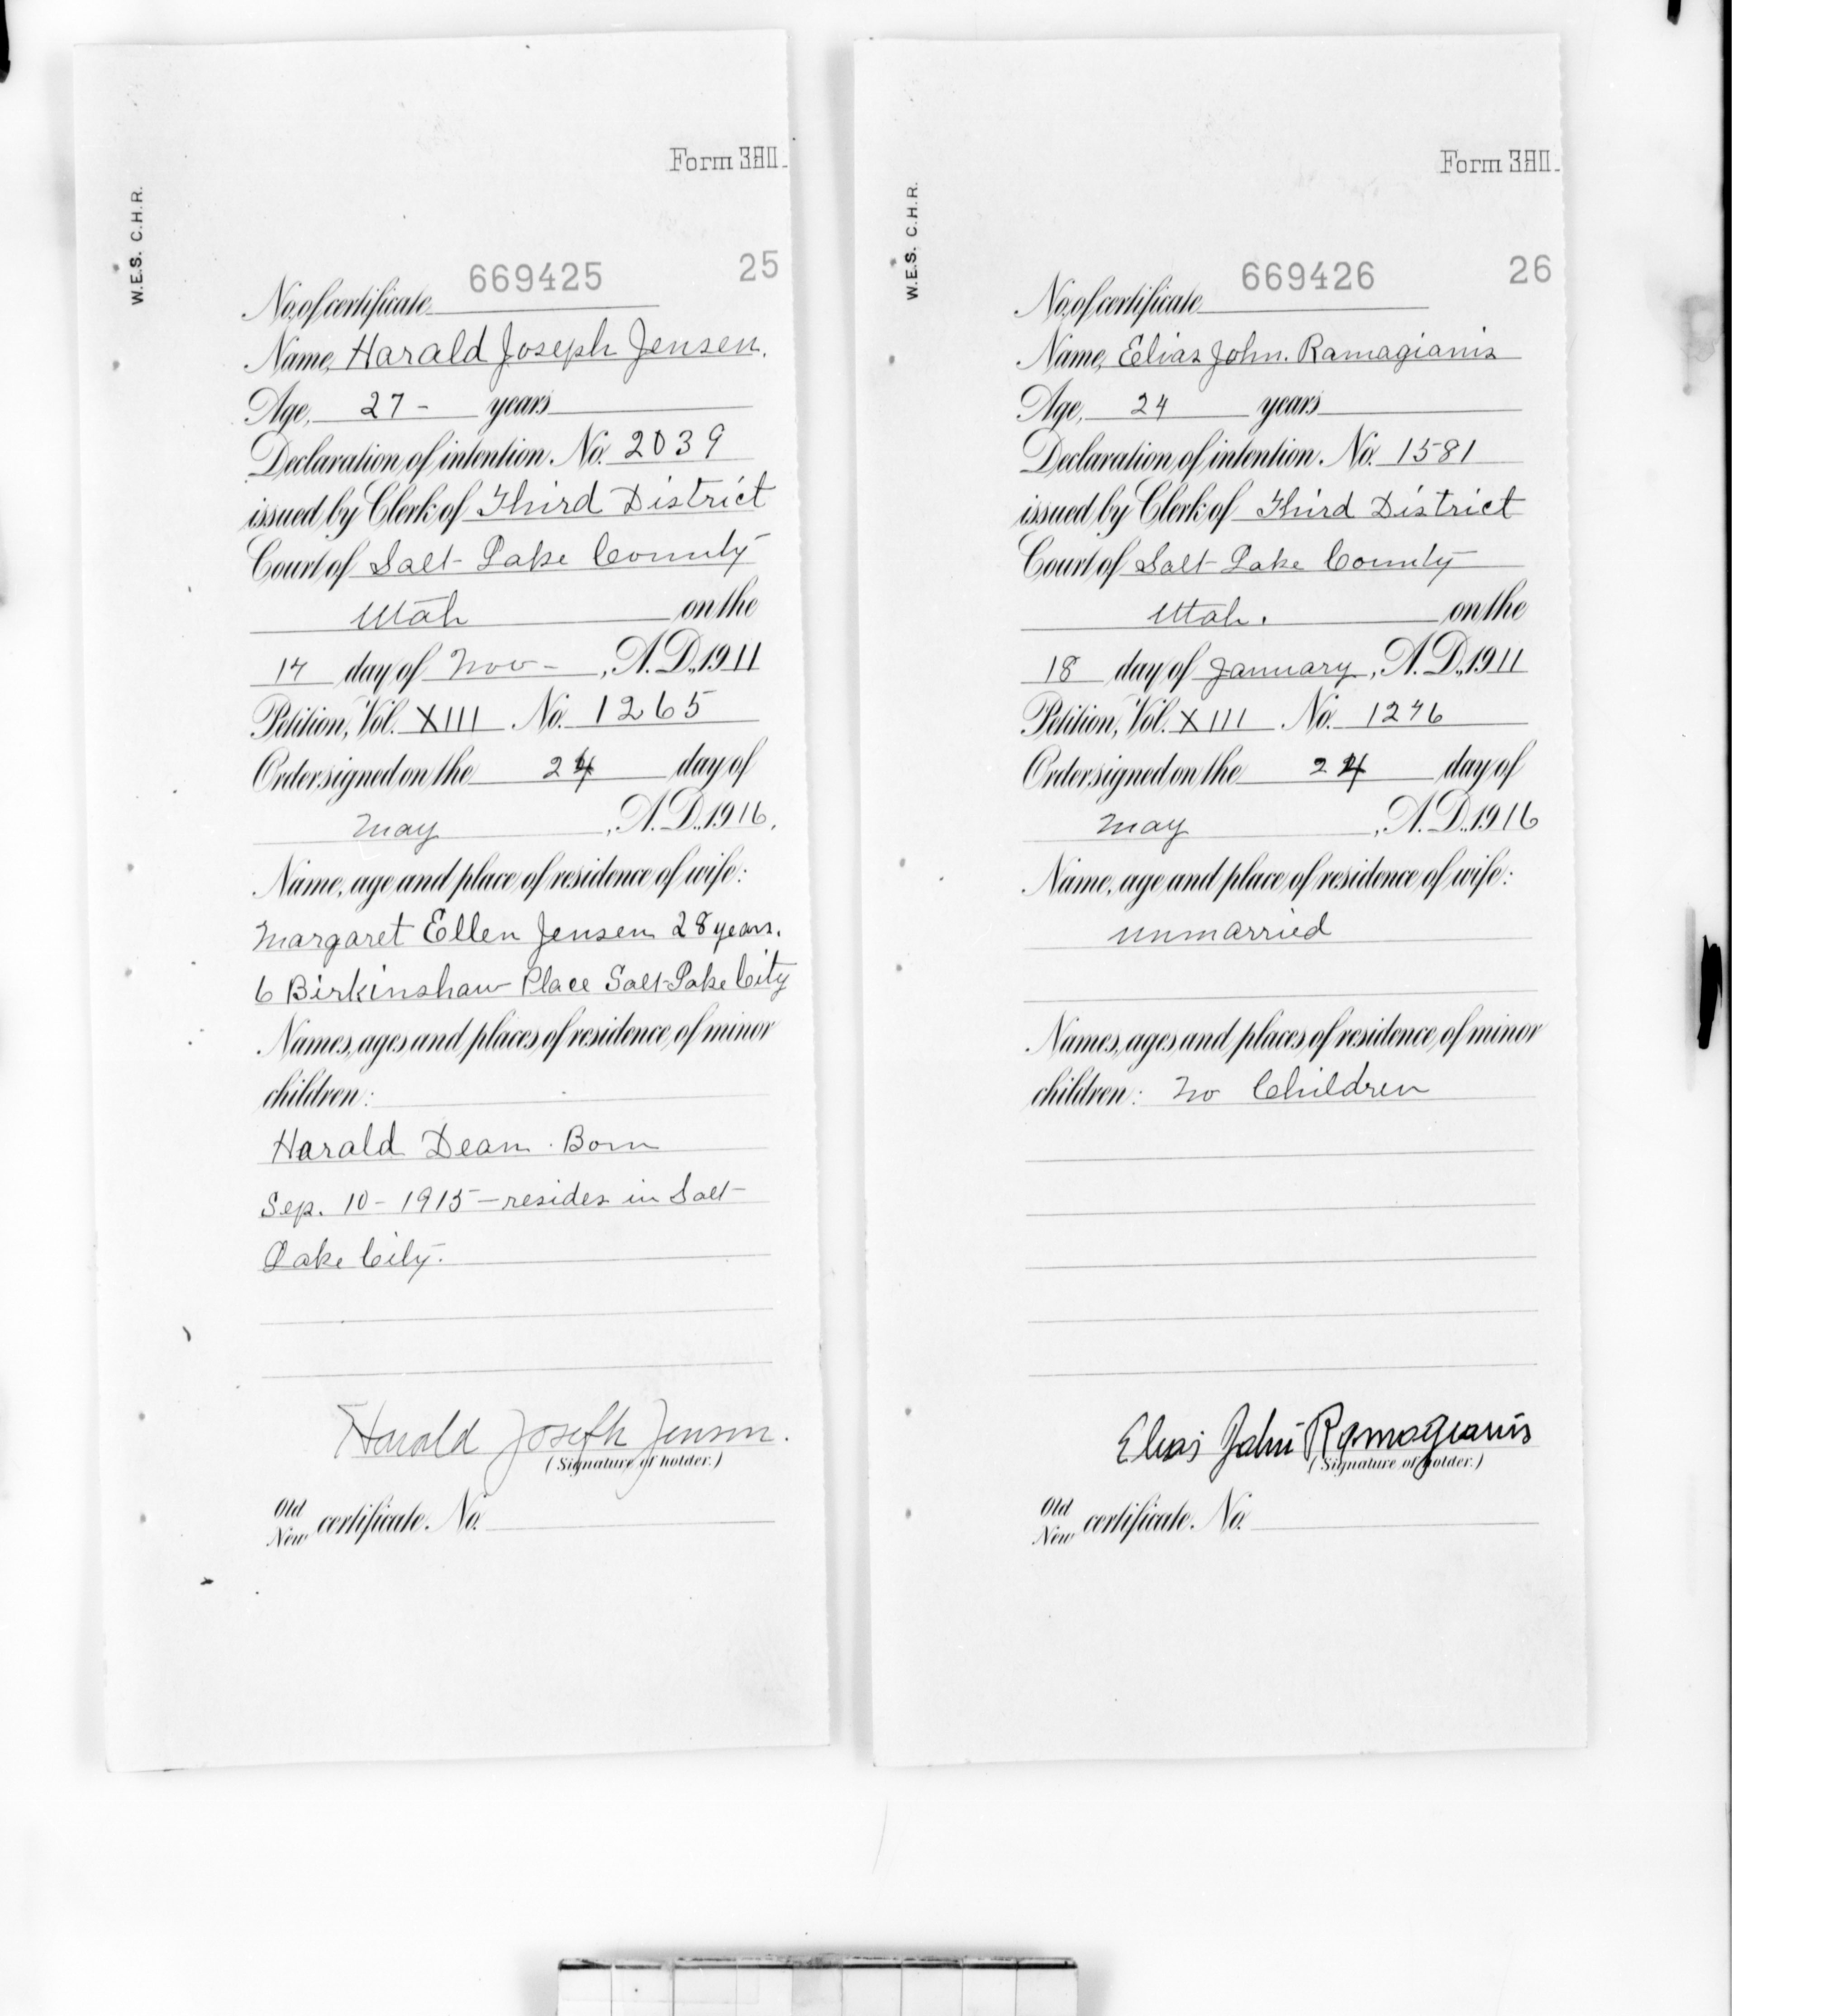 W.E.S. C.H.R.
Form
25
No. of certificate 669425
Name, Harald Joseph Jensen.
Age, 27 - years
Declaration of intention. No. 2039
issued by Clerk of Third District
Court of Salt Lake County
Utah on the
day of Nov - , A.D., 1911
Petition, Vol. XIII No. 1265
Order signed on the 24 day of
May , A.D., 1916.
Name, age and place of residence of wife:
Margaret Ellen Jensen 28 years.
6 Birkinshaw Place Salt Lake City
Names, ages and places of residence of minor
children:
Harald Dean. Born
Sep. 10 - 1915 - resides in Salt
Lake City.
Harald Joseph Jensen.
(Signature of holder.)
Old
New certificate. No.
W.E.S. C.H.R.
Form
26
No. of certificate 669426
Name, Elias John. Ramagianis
Age, 24 years
Declaration of intention. No. 1581
issued by Clerk of Third District
Court of Salt Lake County
Utah. on the
18 day of January, A.D., 1911
Petition, Vol. XIII No. 1276
Order signed on the 24 day of
May , A.D., 1916
Name, age and place of residence of wife:
unmarried
Names, ages and places of residence of minor
children: No Children
Elias John Ramagianis
(Signature of holder.)
Old
New certificate. No.